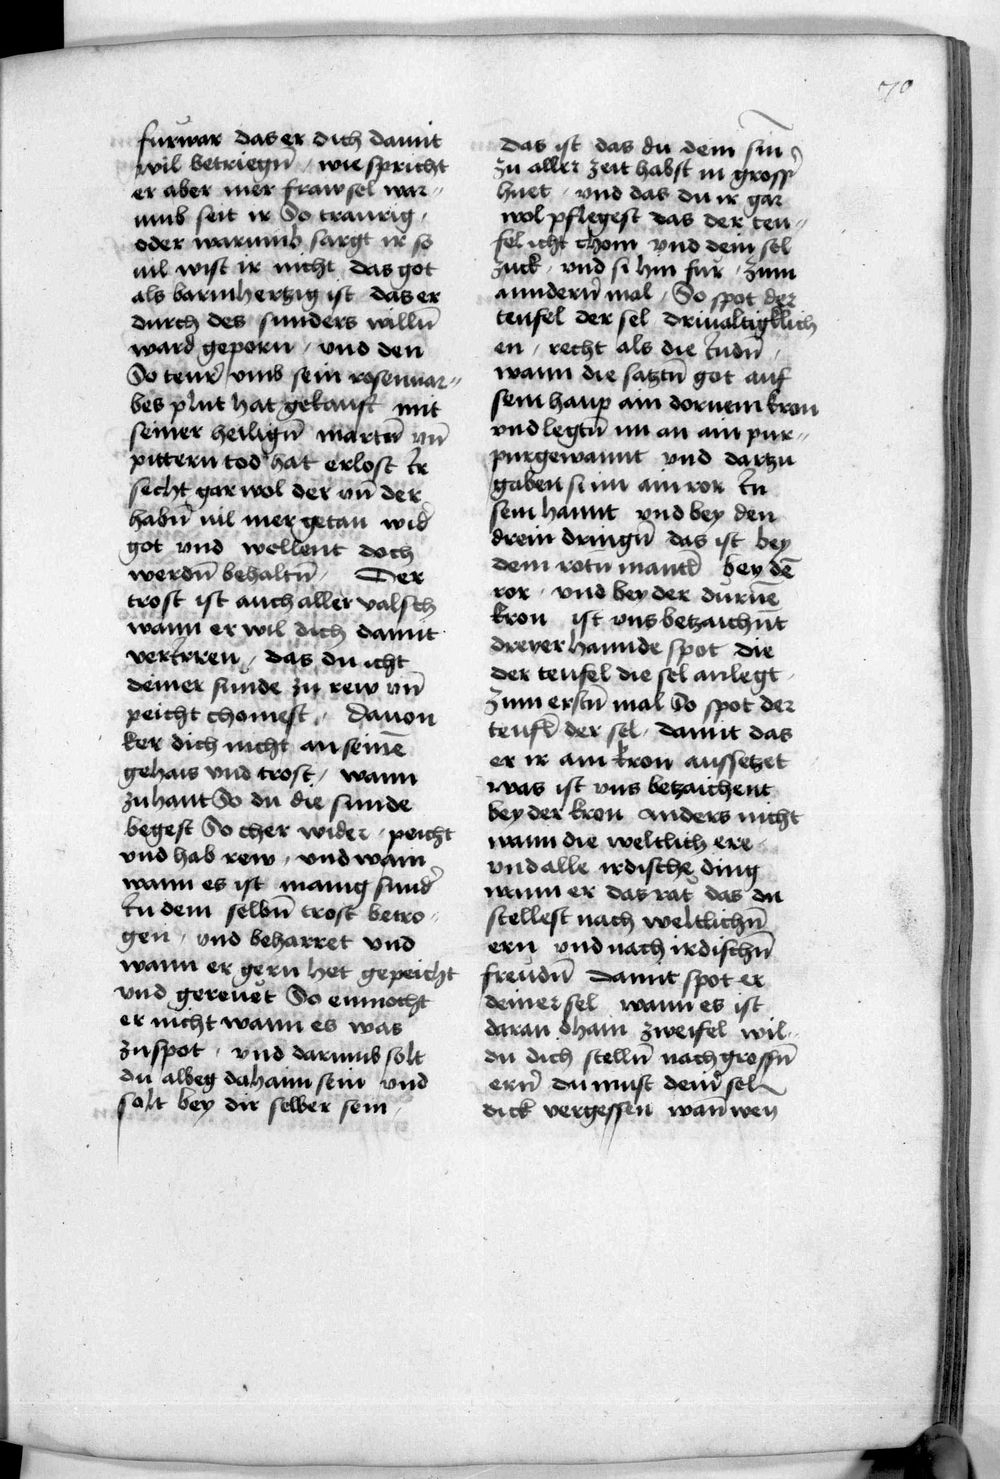 70
furwar das er dich damit
wil betriegn̄ / wie spricht
er aber mer fraw sel war⸗
umb seit ir So traurig /
oder warumb sargt ir so
uil wist ir nicht das got
als barmhertzig ist das er
durch des sunders willn̄
ward geporn / vnd den
So teur vmb sein rosenuar⸗
bes plut hat gekauft mit
seiner heilign̄ martn̄ vn̄
pittern tod hat erlost Ir
secht gar wol der vn̄ der
habn̄ uil mer getan wider
got vnd wellent doch
werdn̄ behaltn̄ / Der
trost ist auch aller valsch
wann er wil dich damit
verirren / das du icht
deiner sunde zu rew vn̄
peicht chomest / dauon
ker dich nicht an seinē
gehais vnd trost / wann
zuhant So du die sunde
begest So cher wider / peicht
vnd hab rew / vnd wain
wann es ist manig sunder
In dem selbn̄ trost betro⸗
gen / vnd beharret vnd
wann er gern het gepeicht
vnd gereuet So enmocht
er nicht wann es was
zuspot / vnd darumb solt
du albeg dahaim sein vnd
solt bey dir selber sein /
das ist das du dein sin
zu aller zeit habst in grosser
huet / vnd das du ir gar
wol pflegest das der teu⸗
fel icht chom vnd dein sel
zuck / vnd si hin fur / Zum
anndern̄ mol / So spot der
teufel der sel driualtigklich
en / recht als die Iudn̄ /
wann die satztn̄ got auf
sein haup ain dornein kron
vnd legtn̄ im an ain pur⸗
purgewannt vnd dartzu
gaben si im ain ror In
sein hannt vnd bey den
drein dringn̄ das ist bey
dem rotn̄ mantl bey dē
ror / vnd bey der durnē
kron ist vns betzaichn̄t
dreyer hannde spot die
der teufel die sel anlegt /
Zum erstn̄ mal So spot der
teufl der sel / damit das
er ir ain kron aufsetzet
was ist vns betzaichent
bey der kron anders nicht
wann die weltlich ere
vnd alle irdische ding
wann er das rat das du
stellest nach weltlichn̄
ern vnd nach irdischn̄
freudn̄ damit spot er
deiner sel wann es ist
daran dhain zweifel wil⸗
du dich stelln̄ nach grossn̄
ern̄ du must deiner sel
dick vergessen wan̄ wen